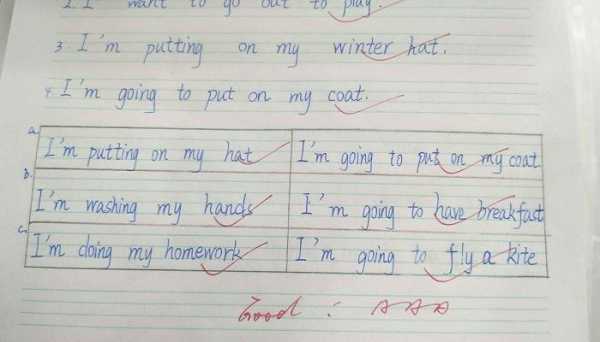 2. I want to go out to play.
3. I'm putting on my winter hat.
4. I'm going to put on my coat.
a. I'm putting on my hat I'm going to put on my coat
b. I'm washing my hands I'm going to have breakfast
c. I'm doing my homework I'm going to fly a kite
Good : AAA